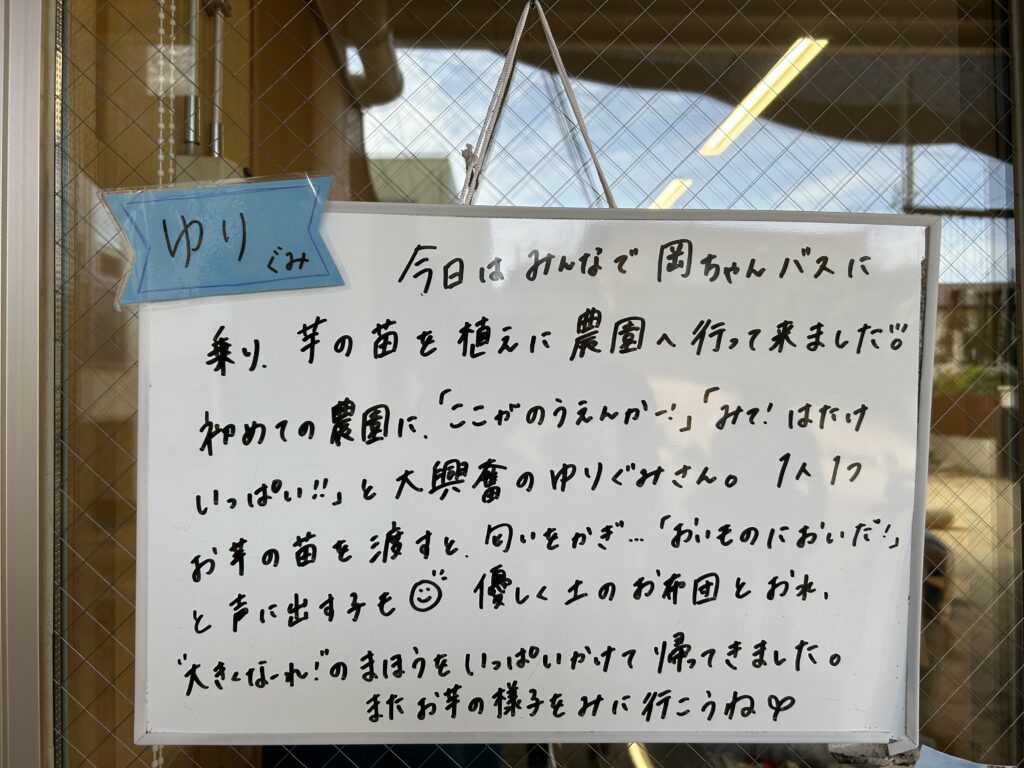 ゆり
ぐみ
今日は みんなで 岡ちゃんバスに
乗り、芋の苗を植えに農園へ行って来ました!!
初めての農園に、「ここがのうえんかー!」「みて!はたけ
いっぱい!!」と大興奮のゆりぐみさん。1人1つ
お芋の苗を渡すと、匂いをかぎ…「おいものにおいだ!」
と声に出す子も☺ 優しく土のお布団とおれ、
"大きくなーれ!"のまほうをいっぱいかけて帰ってきました。
またお芋の様子をみに行こうね♡